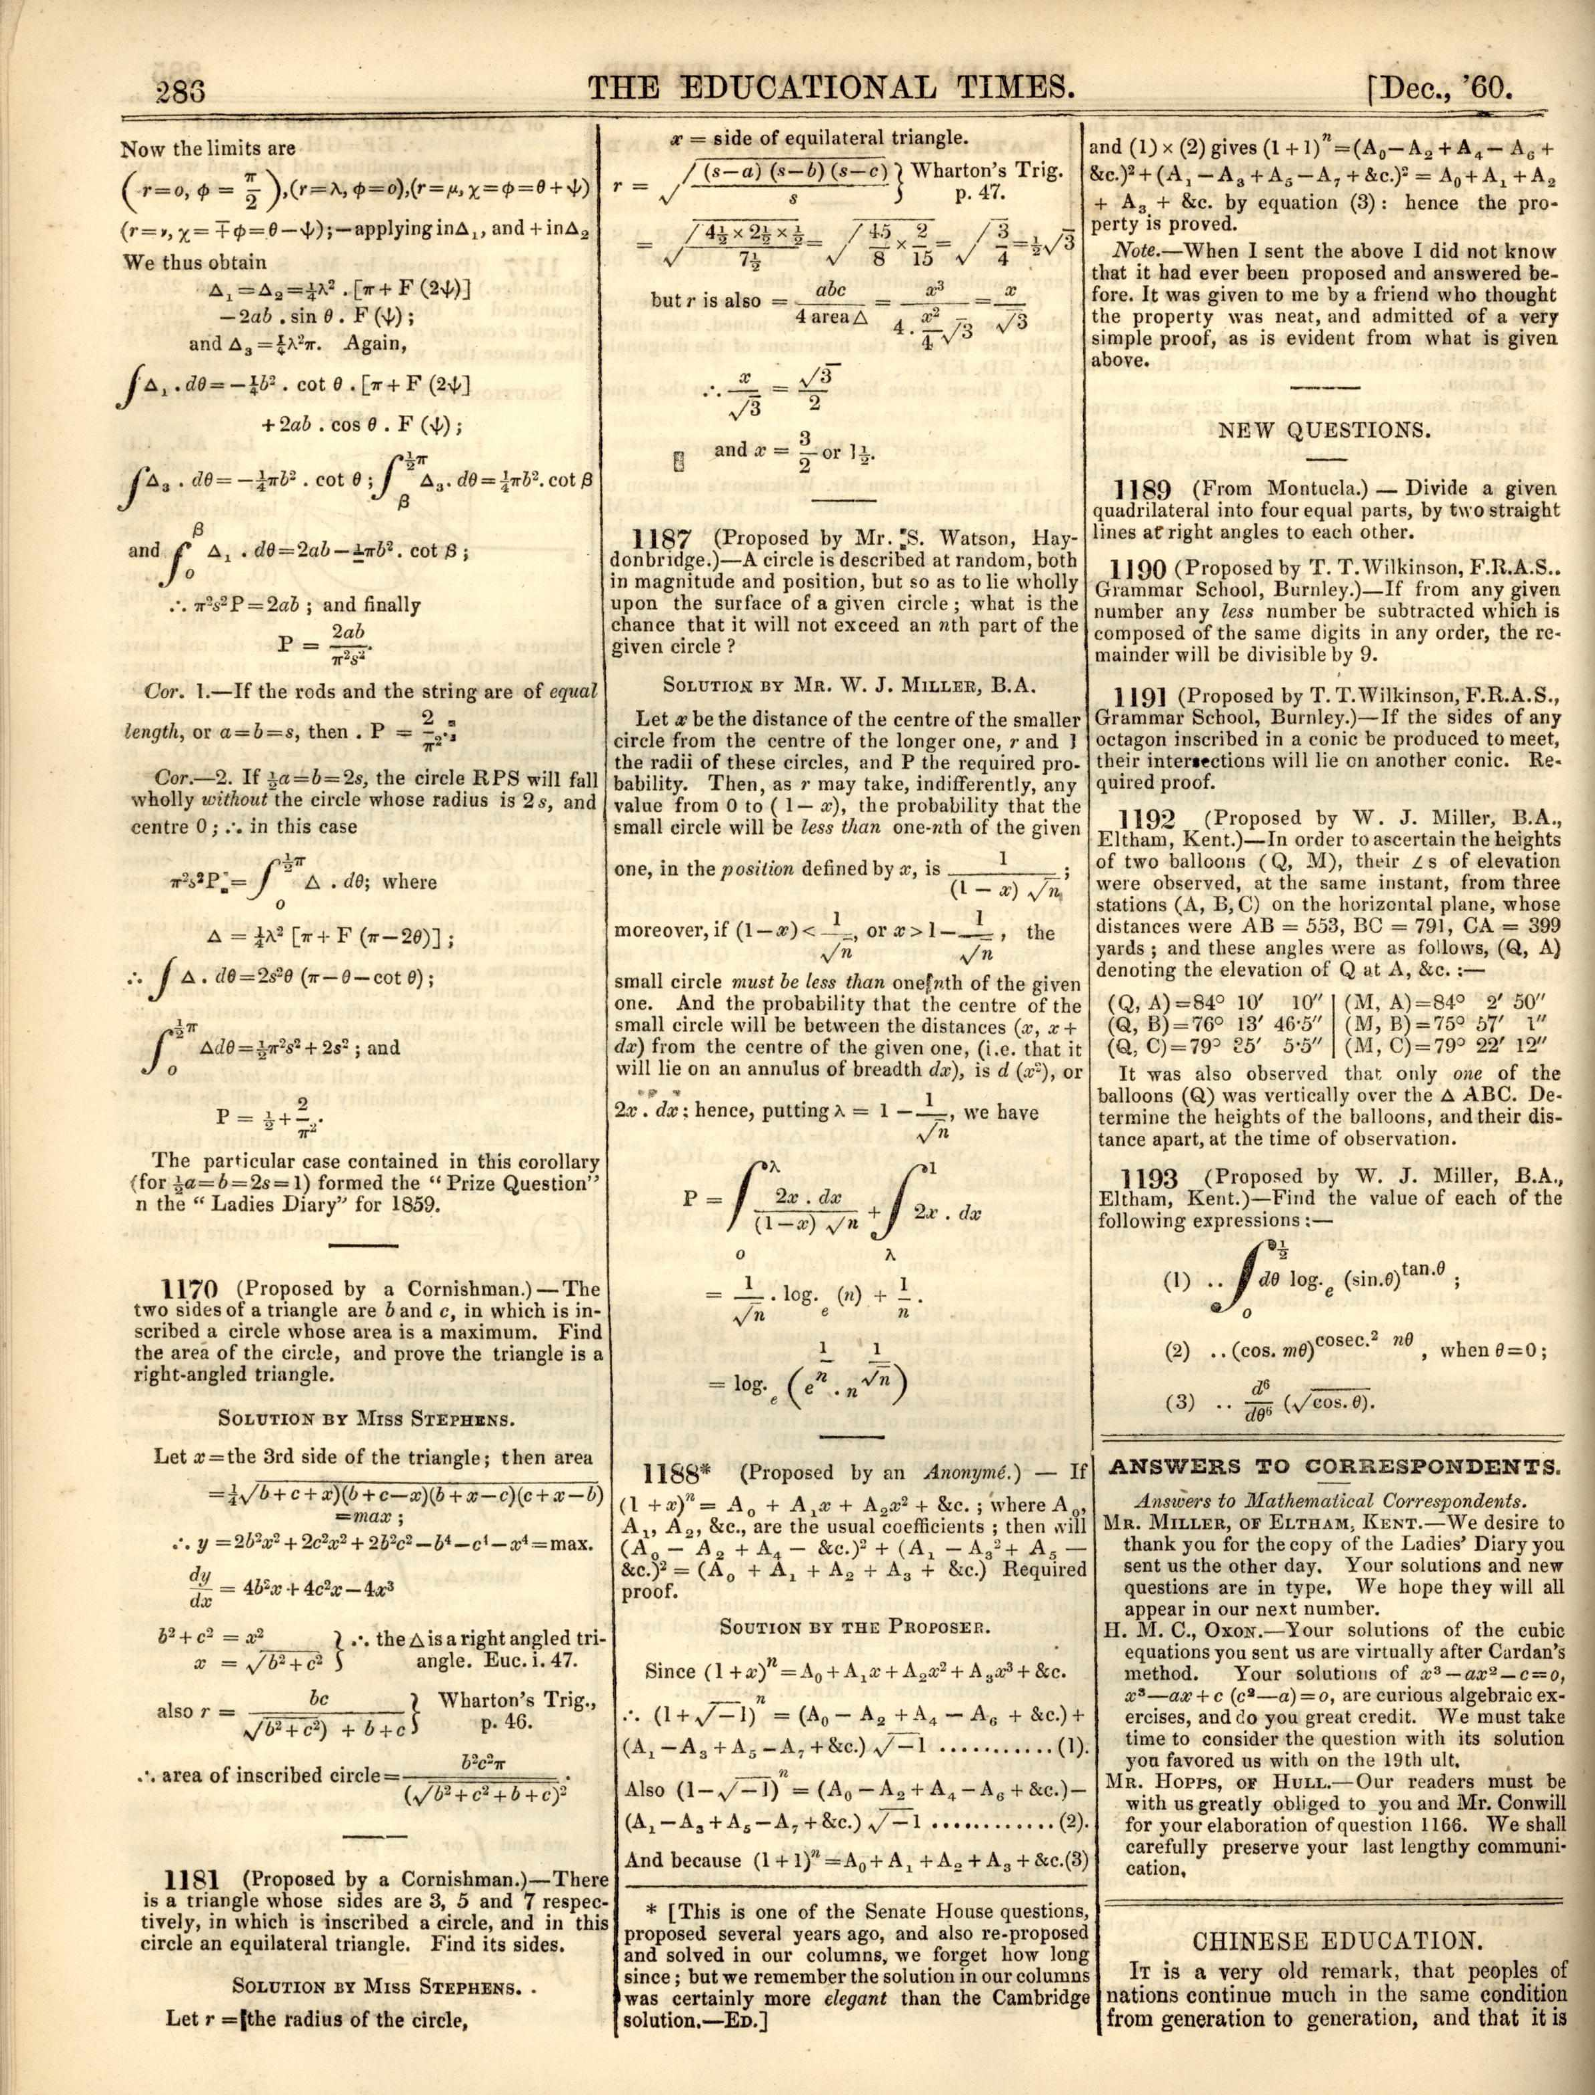 286
THE EDUCATIONAL TIMES.
[Dec., '60.
Now the limits are
(r=o, φ = π/2),(r=λ, φ=o),(r=μ, χ=φ=θ+ψ)
(r=ν, χ= ∓φ=θ−ψ);—applying in Δ₁, and + in Δ₂
We thus obtain
Δ₁=Δ₂=¼λ² . [π + F (2ψ)]
−2ab . sin θ . F (ψ);
and Δ₃=¼λ²π. Again,
∫Δ₁ . dθ=−¼b² . cot θ . [π + F (2ψ]
+2ab . cos θ . F (ψ);
∫Δ₃ . dθ=−¼πb² . cot θ ; ∫_β^{½π} Δ₃. dθ=¼πb². cot β
and ∫_0^β Δ₁ . dθ=2ab−¼πb². cot β ;
∴ π²s²P=2ab ; and finally
P = 2ab/π²s².
Cor. 1.—If the rods and the string are of equal
length, or a=b=s, then . P = 2/π².;
Cor.—2. If ½a=b=2s, the circle RPS will fall
wholly without the circle whose radius is 2s, and
centre O ; ∴ in this case
π²s²P = ∫_0^{½π} Δ . dθ; where
Δ = ¼λ² [π + F (π−2θ)] ;
∴ ∫ Δ . dθ=2s²θ (π−θ−cot θ) ;
∫_0^{½π} Δdθ=½π²s²+2s² ; and
P = ½ + 2/π².
The particular case contained in this corollary
(for ½a=b=2s=1) formed the "Prize Question"
n the "Ladies Diary" for 1859.
1170 (Proposed by a Cornishman.)—The
two sides of a triangle are b and c, in which is in-
scribed a circle whose area is a maximum. Find
the area of the circle, and prove the triangle is a
right-angled triangle.
SOLUTION BY MISS STEPHENS.
Let x=the 3rd side of the triangle; then area
=¼√(b+c+x)(b+c−x)(b+x−c)(c+x−b)
=max ;
∴ y =2b²x²+2c²x²+2b²c²−b⁴−c⁴−x⁴=max.
dy/dx = 4b²x+4c²x−4x³
b²+c² = x² } ∴ the Δ is a right angled tri-
x = √b²+c² } angle. Euc. i. 47.
also r = bc/(√(b²+c²) + b+c) } Wharton's Trig.,
p. 46.
∴ area of inscribed circle= b²c²π/(√b²+c²+b+c)² .
1181 (Proposed by a Cornishman.)—There
is a triangle whose sides are 3, 5 and 7 respec-
tively, in which is inscribed a circle, and in this
circle an equilateral triangle. Find its sides.
SOLUTION BY MISS STEPHENS. .
Let r = the radius of the circle,
x = side of equilateral triangle.
r = √((s−a) (s−b) (s−c)/s) } Wharton's Trig.
p. 47.
= √(4½ × 2½ × ½/7½) = √(45/8 × 2/15) = √(3/4) = ½√3
but r is also = abc/4 area Δ = x³/(4 . x²/4 √3) = x/√3
∴ x/√3 = √3/2
and x = 3/2 or 1½.
1187 (Proposed by Mr. S. Watson, Hay-
donbridge.)—A circle is described at random, both
in magnitude and position, but so as to lie wholly
upon the surface of a given circle ; what is the
chance that it will not exceed an nth part of the
given circle ?
SOLUTION BY MR. W. J. MILLER, B.A.
Let x be the distance of the centre of the smaller
circle from the centre of the longer one, r and 1
the radii of these circles, and P the required pro-
bability. Then, as r may take, indifferently, any
value from 0 to (1−x), the probability that the
small circle will be less than one-nth of the given
one, in the position defined by x, is 1/((1 − x) √n) ;
moreover, if (1−x) < 1/√n, or x > 1 − 1/√n , the
small circle must be less than one nth of the given
one. And the probability that the centre of the
small circle will be between the distances (x, x+
dx) from the centre of the given one, (i.e. that it
will lie on an annulus of breadth dx), is d (x²), or
2x . dx ; hence, putting λ = 1 − 1/√n, we have
P = ∫_0^λ 2x . dx/((1−x) √n) + ∫_λ^1 2x . dx
= 1/√n . log.e (n) + 1/n .
= log.e (e^{1/n} . n^{1/√n})
1188* (Proposed by an Anonymé.) — If
(1 +x)ⁿ = A₀ + A₁x + A₂x² + &c. ; where A₀,
A₁, A₂, &c., are the usual coefficients ; then will
(A₀ − A₂ + A₄ − &c.)² + (A₁ − A₃ + A₅ −
&c.)² = (A₀ + A₁ + A₂ + A₃ + &c.) Required
proof.
SOUTION BY THE PROPOSER.
Since (1+x)ⁿ=A₀+A₁x+A₂x²+A₃x³+&c.
∴ (1+√−1)ⁿ = (A₀ − A₂ +A₄ − A₆ + &c.)+
(A₁−A₃+A₅−A₇+&c.) √−1 ...........(1).
Also (1−√−1)ⁿ = (A₀−A₂+A₄−A₆+&c.)−
(A₁−A₃+A₅−A₇+&c.) √−1 ............(2).
And because (1+1)ⁿ=A₀+A₁+A₂+A₃+&c.(3)
* [This is one of the Senate House questions,
proposed several years ago, and also re-proposed
and solved in our columns, we forget how long
since ; but we remember the solution in our columns
was certainly more elegant than the Cambridge
solution.—ED.]
and (1) × (2) gives (1+1)ⁿ=(A₀−A₂+A₄−A₆+
&c.)²+(A₁−A₃+A₅−A₇+&c.)² = A₀+A₁+A₂
+ A₃ + &c. by equation (3) : hence the pro-
perty is proved.
Note.—When I sent the above I did not know
that it had ever been proposed and answered be-
fore. It was given to me by a friend who thought
the property was neat, and admitted of a very
simple proof, as is evident from what is given
above.
NEW QUESTIONS.
1189 (From Montucla.) — Divide a given
quadrilateral into four equal parts, by two straight
lines at right angles to each other.
1190 (Proposed by T. T. Wilkinson, F.R.A.S..
Grammar School, Burnley.)—If from any given
number any less number be subtracted which is
composed of the same digits in any order, the re-
mainder will be divisible by 9.
1191 (Proposed by T. T. Wilkinson, F.R.A.S.,
Grammar School, Burnley.)—If the sides of any
octagon inscribed in a conic be produced to meet,
their intersections will lie on another conic. Re-
quired proof.
1192 (Proposed by W. J. Miller, B.A.,
Eltham, Kent.)—In order to ascertain the heights
of two balloons (Q, M), their ∠s of elevation
were observed, at the same instant, from three
stations (A, B, C) on the horizontal plane, whose
distances were AB = 553, BC = 791, CA = 399
yards ; and these angles were as follows, (Q, A)
denoting the elevation of Q at A, &c. :—
(Q, A)=84° 10′ 10″ | (M, A)=84° 2′ 50″
(Q, B)=76° 13′ 46·5″ | (M, B)=75° 57′ 1″
(Q, C)=79° 25′ 5·5″ | (M, C)=79° 22′ 12″
It was also observed that only one of the
balloons (Q) was vertically over the Δ ABC. De-
termine the heights of the balloons, and their dis-
tance apart, at the time of observation.
1193 (Proposed by W. J. Miller, B.A.,
Eltham, Kent.)—Find the value of each of the
following expressions :—
(1) .. ∫_0^{½} dθ log.e (sin.θ)^{tan.θ} ;
(2) .. (cos. mθ)^{cosec.² nθ} , when θ=0 ;
(3) .. d⁶/dθ⁶ (√cos. θ).
ANSWERS TO CORRESPONDENTS.
Answers to Mathematical Correspondents.
MR. MILLER, OF ELTHAM, KENT.—We desire to
thank you for the copy of the Ladies' Diary you
sent us the other day. Your solutions and new
questions are in type. We hope they will all
appear in our next number.
H. M. C., OXON.—Your solutions of the cubic
equations you sent us are virtually after Cardan's
method. Your solutions of x³−ax²−c=o,
x³—ax+c (c²—a)=o, are curious algebraic ex-
ercises, and do you great credit. We must take
time to consider the question with its solution
you favored us with on the 19th ult.
MR. HOPPS, OF HULL.—Our readers must be
with us greatly obliged to you and Mr. Conwill
for your elaboration of question 1166. We shall
carefully preserve your last lengthy communi-
cation.
CHINESE EDUCATION.
IT is a very old remark, that peoples of
nations continue much in the same condition
from generation to generation, and that it is